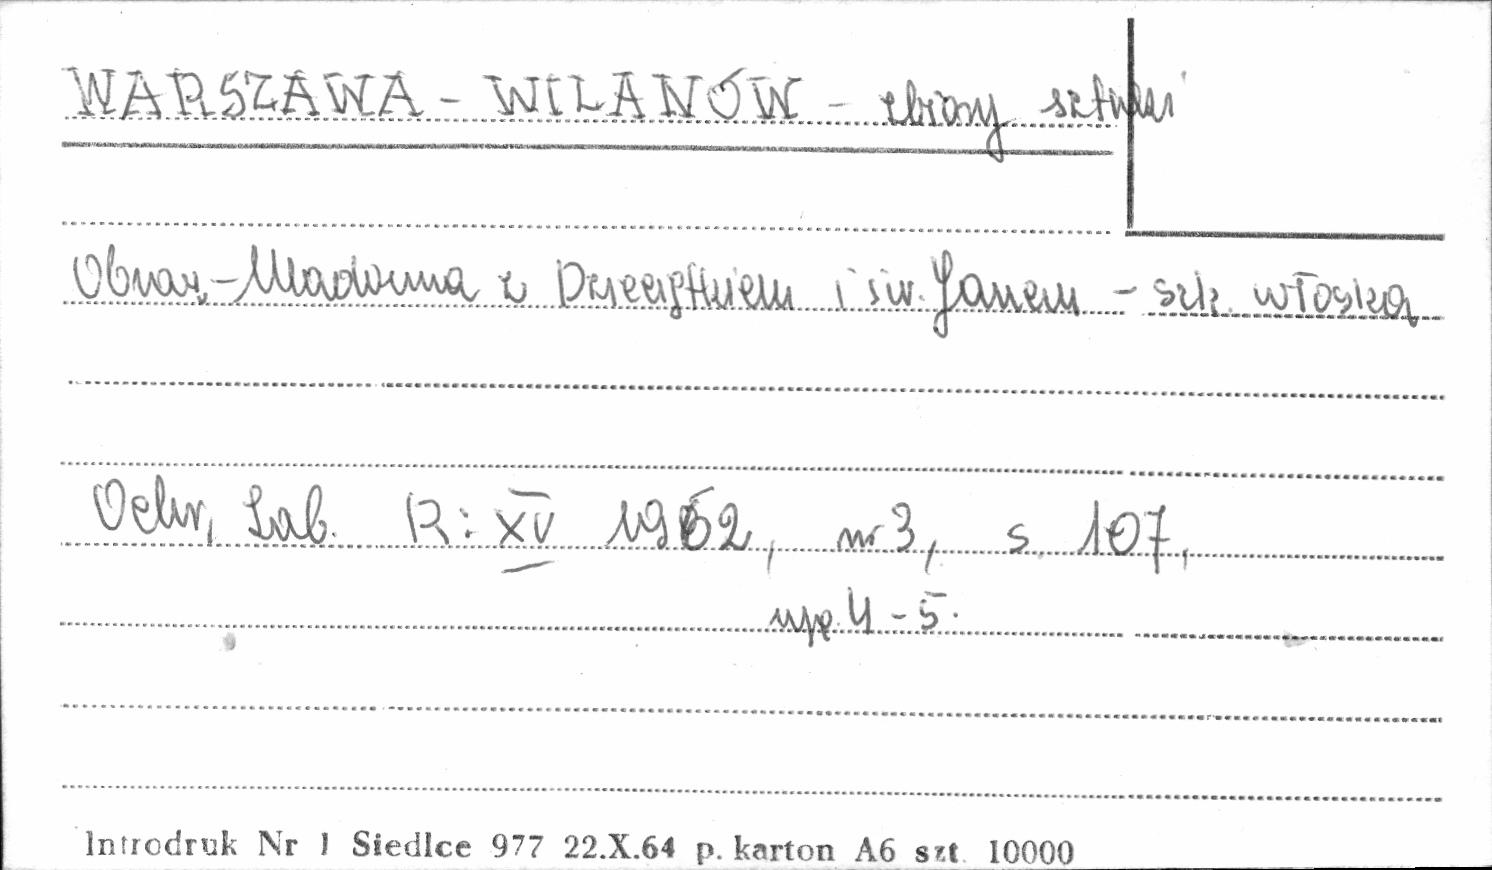 WARSZAWA - WILANÓW - zbiory sztuki
Obraz - Madonna z Dzieciątkiem i św. Janem - szk. włoska
Ochr. Zab. R: XV 1962, nr 3, s. 107,
ryc. 4 - 5.
Introdruk Nr 1 Siedlce 977 22.X.64 p. karton A6 szt. 10000